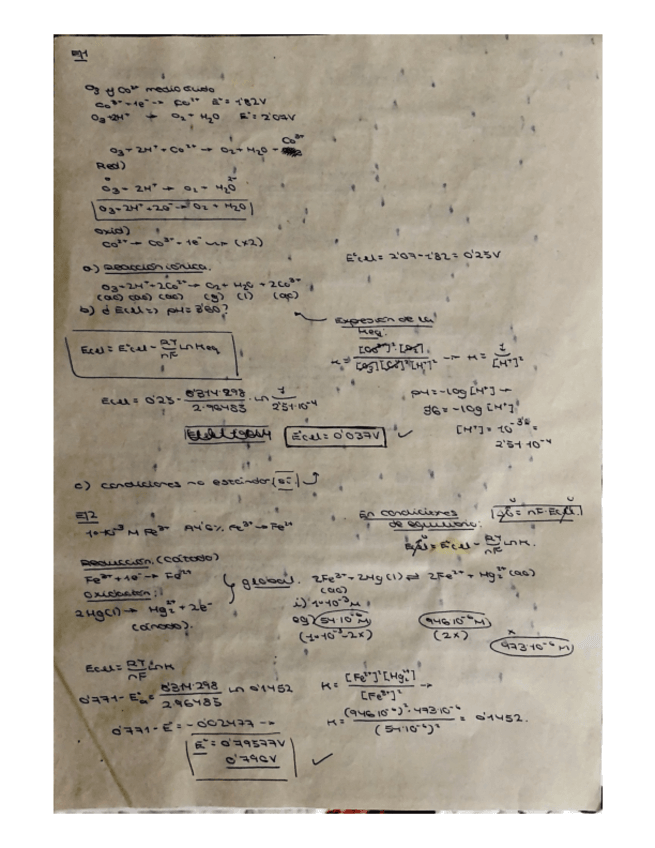 EJ1
O3 y Co2+ medio ácido
Co3+ + 1e- → Co2+ E° = 1'82V
O3 + 2H+ → O2 + H2O E° = 2'07V
O3 + 2H+ + Co2+ → O2 + H2O + Co3+
Red)
O3 + 2H+ → O2 + H2O
O3 + 2H+ + 2e- → O2 + H2O
Oxid)
Co2+ → Co3+ + 1e- (x2)
E°cel = 2'07 - 1'82 = 0'25V
a) Reacción iónica.
O3 + 2H+ + 2Co2+ → O2 + H2O + 2Co3+
(ac) (ac) (g) (l) (ac)
b) d Ecel => pH = 3'60?
Expresión de la
Keq.
Ecel = E°cel - RT/nF Ln Keq
K = 1/[H+]2
pH = -log [H+] →
3'6 = -log [H+]
[H+] = 10-3'6 =
2'51·10-4
Ecel = 0'25 - 8'314·298/2·96485 · Ln 1/2'51·10-4
Ecel = 0'037V
c) condiciones no estándar
EJ2
1·10-3 M Fe3+ 94'6% Fe3+ → Fe2+
En condiciones
de equilibrio:
E°cel = Ecel - RT/nF Ln K.
Reducción. (cátodo)
Fe3+ + 1e- → Fe2+
Oxidación:
2Hg(l) → Hg2 2+ + 2e-
(ánodo).
global. 2Fe3+ + 2Hg(l) ⇌ 2Fe2+ + Hg2 2+ (ac)
(ac)
i) 1·10-3 M
eq) 54·10-6 M 946·10-6 M x
(1·10-3 - 2x) (2x) 473·10-6 M
Ecel = RT/nF Ln K
K = [Fe2+]2 [Hg2 2+]/[Fe3+]2 →
0'771 - E° = 8'314·298/2·96485 Ln 0'1452
K = (946·10-6)2 · 473·10-6/(54·10-6)2 = 0'1452.
0'771 - E° = -0'02477 →
E° = 0'79577V
0'796V